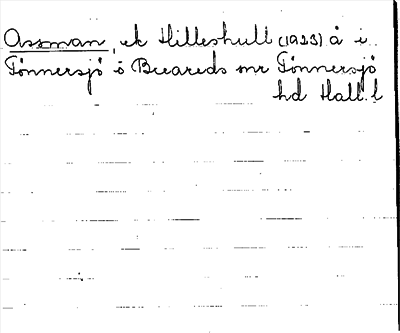 Assman, ek Hilleshult (1923) å i
Tönnersjö o Breareds snr Tönnersjö
hd Hall. l